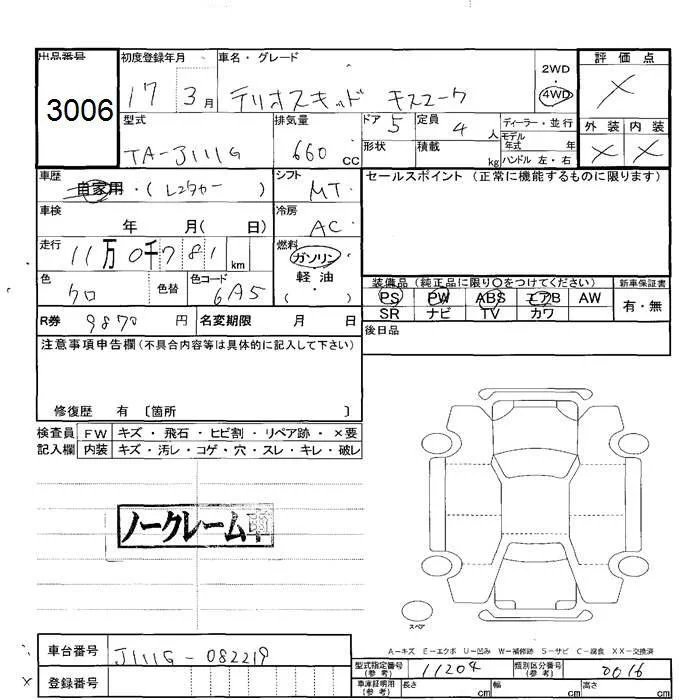 出品番号 初度登録年月 車名・グレード 評価点
3006 17 3月 テリオスキッド キスマーク 2WD 4WD ×
型式 排気量 ドア 5 定員 4人 ディーラー・並行 外装 内装
TA-J111G 660cc 形状 積載 kg モデル年式 年 ハンドル 左・右 × ×
車歴 自家用・(レンタカー) シフト MT セールスポイント (正常に機能するものに限ります)
車検 年 月( 日) 冷房 AC
走行 11万0千781km 燃料 ガソリン
軽油
( )
色 クロ 色替 色コード 6A5
装備品 (純正品に限り○をつけてください) 新車保証書
PS PW ABS エアB AW 有・無
SR ナビ TV カワ
R券 9870円 名変期限 月 日 後日品
注意事項申告欄(不具合内容等は具体的に記入して下さい)
修復歴 有 〔箇所 〕
検査員 FW キズ・飛石・ヒビ割・リペア跡・×要
記入欄 内装 キズ・汚レ・コゲ・穴・スレ・キレ・破レ
ノークレーム車
スペア
A-キズ E-エクボ U-凹み W-補修跡 S-サビ C-腐食 XX-交換済
車台番号 J111G-082219 型式指定番号(参考) 11204 類別区分番号(参考) 0016
登録番号 車庫証明用(参考) 長さ cm 幅 cm 高さ cm